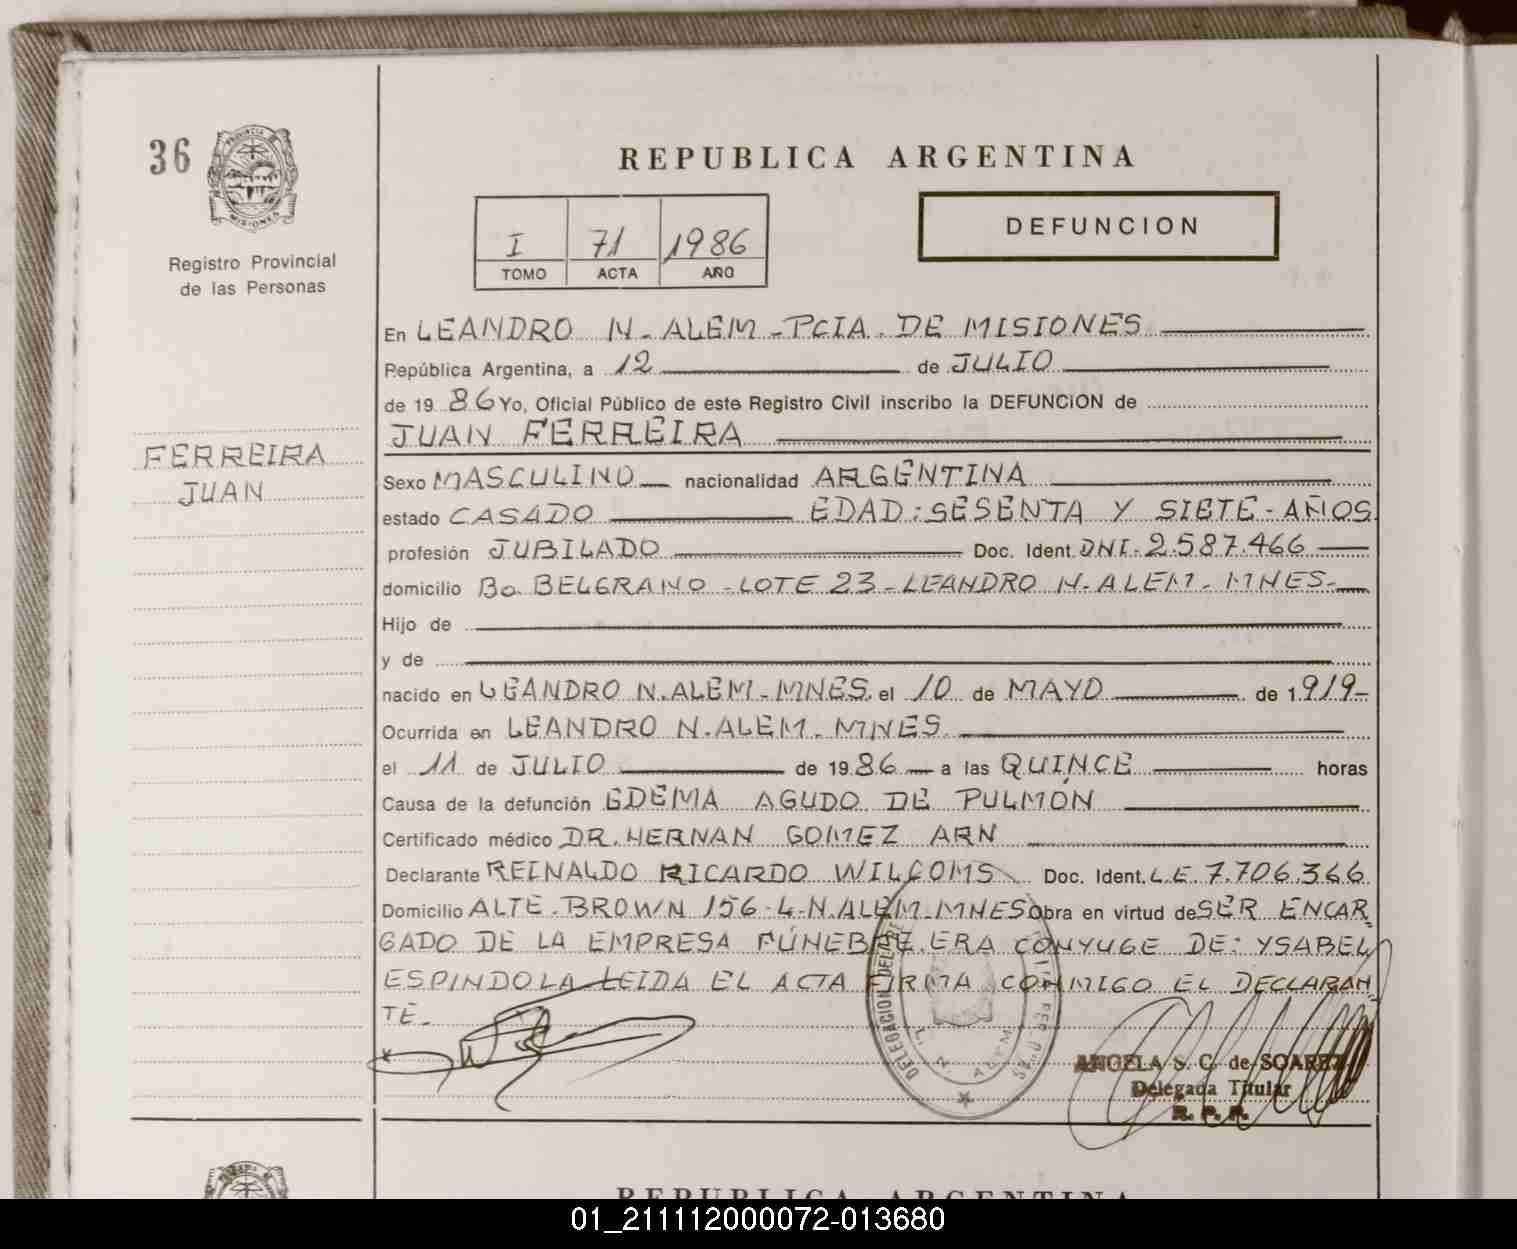 36
PROVINCIA DE
MISIONES
Registro Provincial
de las Personas
FERREIRA
JUAN
REPUBLICA ARGENTINA
I 71 1986
TOMO ACTA AÑO
DEFUNCION
En LEANDRO N. ALEM - PCIA. DE MISIONES
República Argentina, a 12 de JULIO
de 19 86 Yo, Oficial Público de este Registro Civil inscribo la DEFUNCION de
JUAN FERREIRA
Sexo MASCULINO nacionalidad ARGENTINA
estado CASADO EDAD: SESENTA Y SIETE - AÑOS
profesión JUBILADO Doc. Ident. DNI. 2.587.466
domicilio Bo. BELGRANO - LOTE 23 - LEANDRO N. ALEM - MNES -
Hijo de
y de
nacido en LEANDRO N. ALEM - MNES. el 10 de MAYO de 1.919 -
Ocurrida en LEANDRO N. ALEM. MNES.
el 11 de JULIO de 19 86 a las QUINCE horas
Causa de la defunción EDEMA AGUDO DE PULMON
Certificado médico DR. HERNAN GOMEZ ARN
Declarante REINALDO RICARDO WILCOMS Doc. Ident. L.E. 7.706.366
Domicilio ALTE. BROWN 156 - L. N. ALEM - MNES Obra en virtud de SER ENCAR
GADO DE LA EMPRESA FÚNEBRE. ERA CONYUGE DE: YSABEL
ESPINDOLA LEIDA EL ACTA FIRMA CONMIGO EL DECLARAN
TE.
DELEGACION DEL
L. N. ALEM
ANGELA S. C. de SOAREZ
Delegada Titular
R. P. P.
REPUBLICA ARGENTINA
01_211112000072-013680